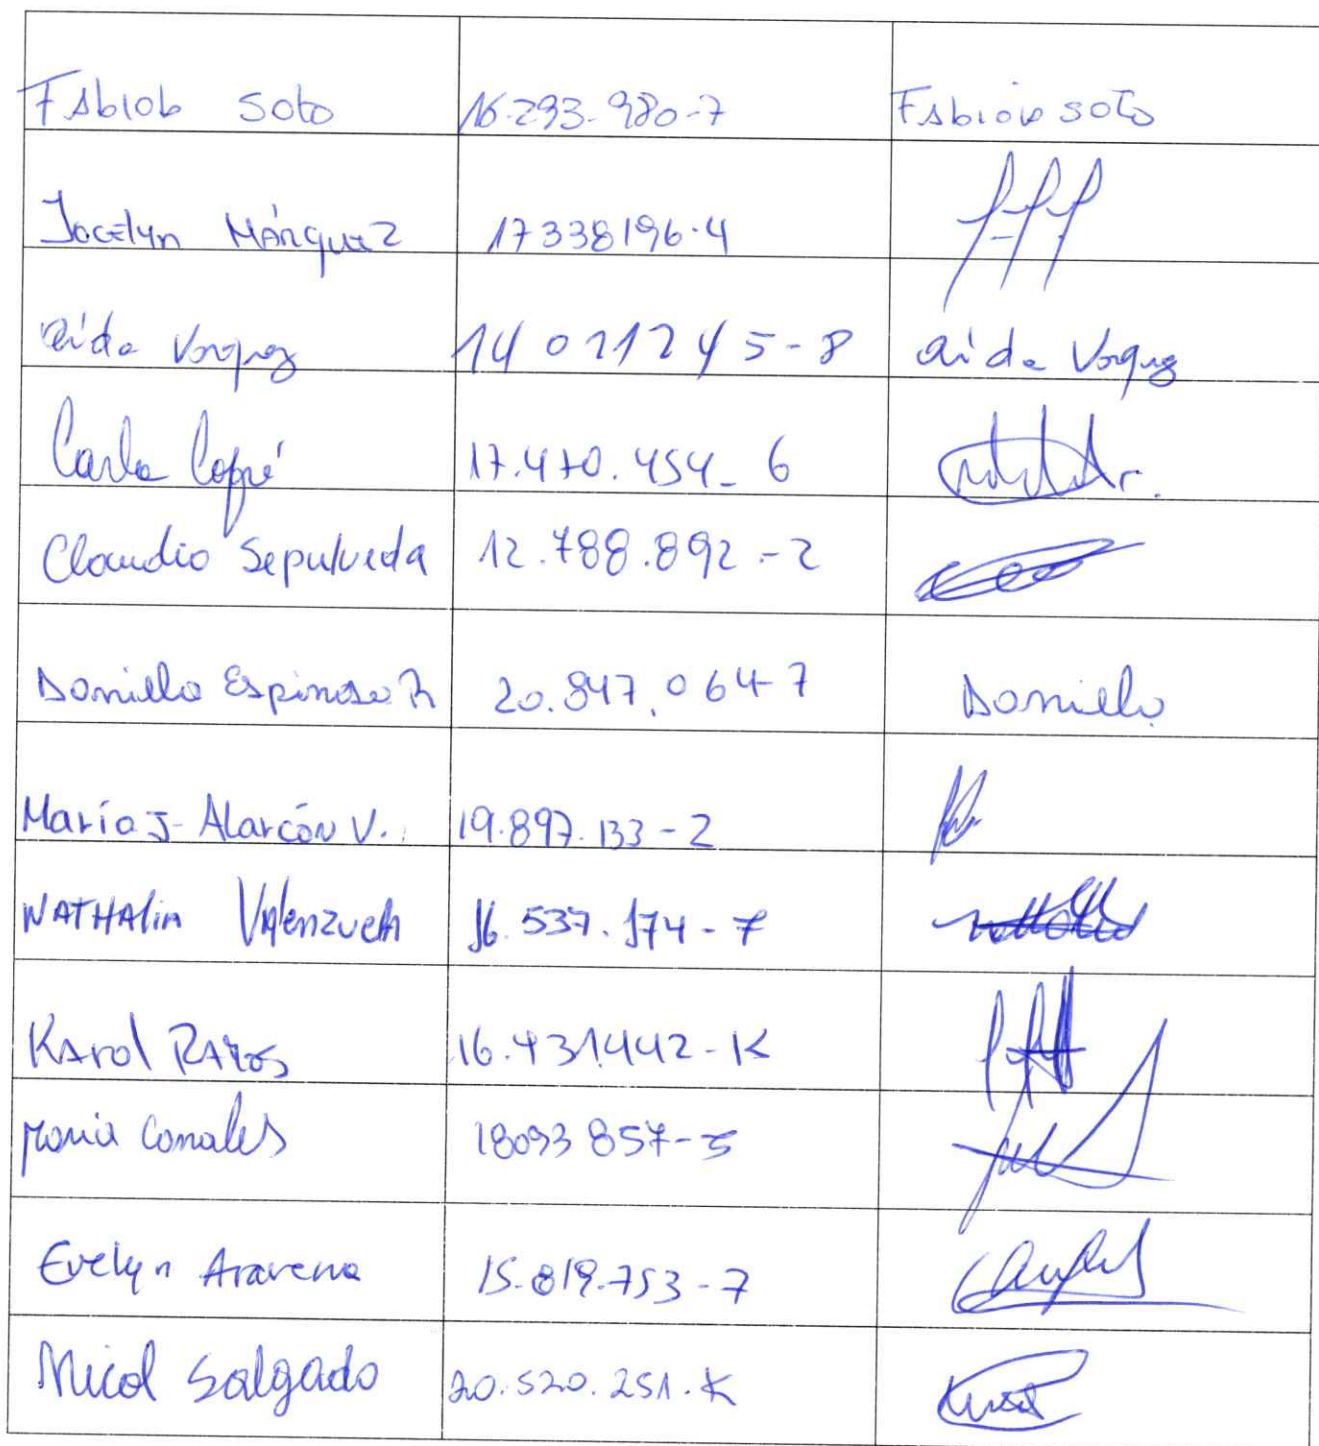 Fabiola Soto 16.293.980-7 Fabiola Soto
Jocelyn Márquez 17338196-4
Aida Vasquez 14021245-8 Aida Vasquez
Carla Cofré 17.470.454-6
Claudio Sepulveda 12.788.892-2
Daniella Espinosa R 20.847.064-7 Daniella
María J. Alarcón V. 19.897.133-2
NATHAlia Valenzuela 16.537.174-7
Karol 16.431.442-K
María Canales 18093857-5
Evelyn Aravena 15.819.753-7
Nicol Salgado 20.520.251-K